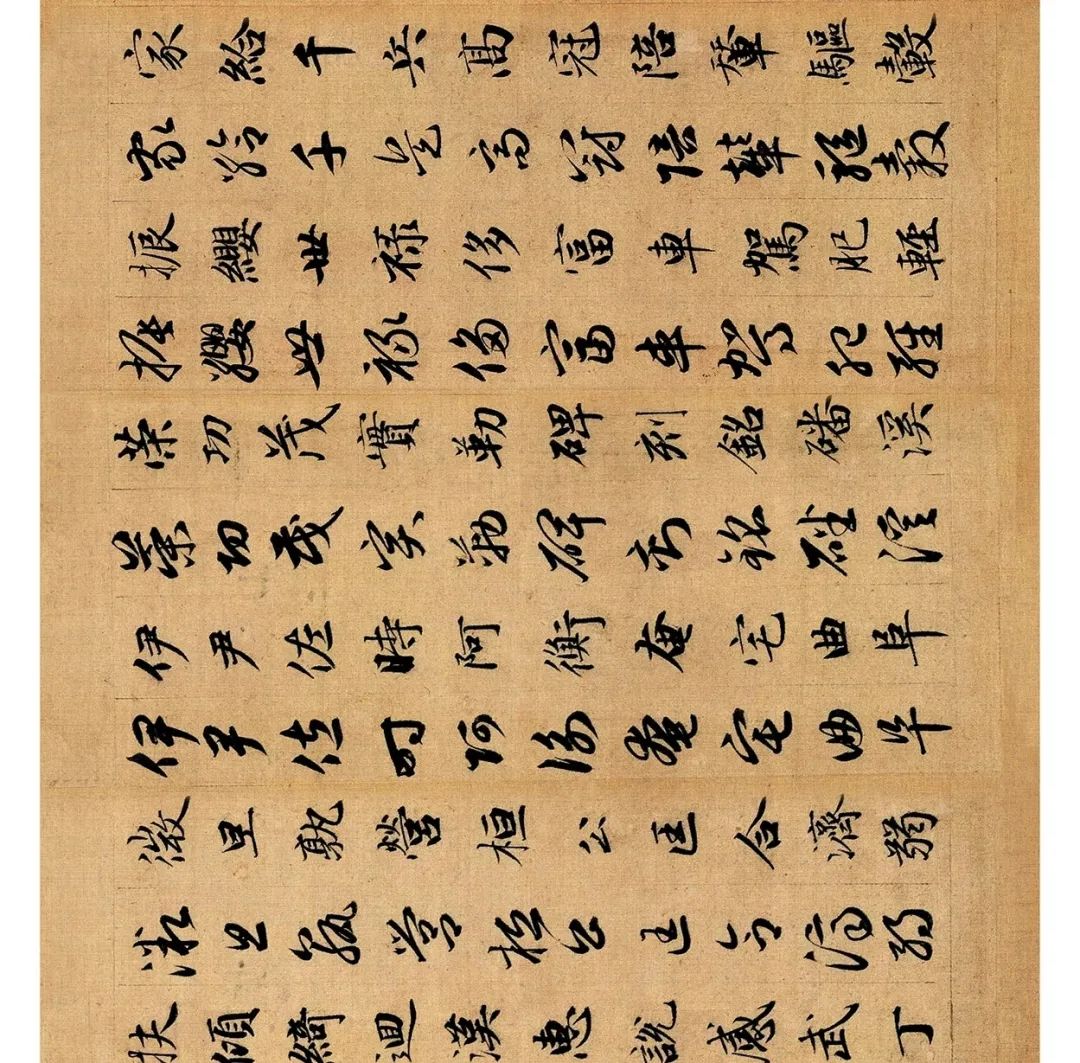 家給千兵高冠陪輦驅轂
家給千兵高冠陪輦驅轂
振纓世祿侈富車駕肥輕
振纓世祿侈富車駕肥輕
策功茂實勒碑刻銘磻溪
策功茂實勒碑刻銘磻溪
伊尹佐時阿衡奄宅曲阜
伊尹佐時阿衡奄宅曲阜
微旦孰營桓公匡合濟弱
微旦孰營桓公匡合濟弱
扶傾綺迴漢惠說感武丁